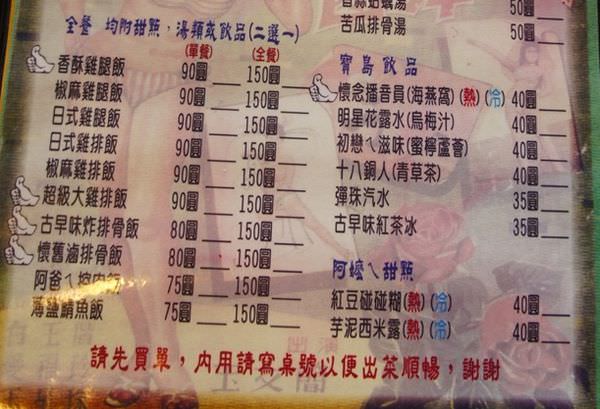 全餐 均附甜點，湯類或飲品(二選一)
(單餐) (全餐)
香酥雞腿飯 90圓 150圓
椒麻雞腿飯 90圓 150圓
日式雞腿飯 90圓 150圓
日式雞排飯 90圓 150圓
椒麻雞排飯 90圓 150圓
超級大雞排飯 90圓 150圓
古早味炸排骨飯 80圓 150圓
懷舊滷排骨飯 80圓 150圓
阿爸ㄟ控肉飯 75圓 150圓
薄鹽鯖魚飯 75圓 150圓
香蒜蛤蠣湯 50圓
苦瓜排骨湯 50圓
寶島飲品
懷念播音員(海燕窩)(熱)(冷) 40圓
明星花露水(烏梅汁) 40圓
初戀ㄟ滋味(蜜檸蘆薈) 40圓
十八銅人(青草茶) 40圓
彈珠汽水 35圓
古早味紅茶冰 35圓
阿嬤ㄟ甜點
紅豆碰碰糊(熱)(冷) 40圓
芋泥西米露(熱)(冷) 40圓
請先買單，內用請寫桌號以便出菜順暢，謝謝